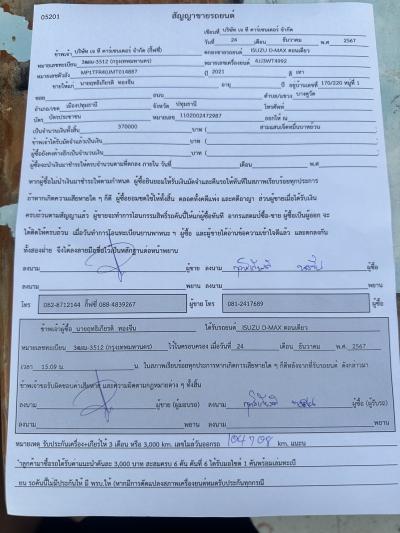 05201
สัญญาขายรถยนต์
เขียนที่ บริษัท เจ ที คาร์เซนเตอร์ จำกัด
วันที่ 24 เดือน ธันวาคม พ.ศ. 2567
ข้าพเจ้า บริษัท เจ ที คาร์เซนเตอร์ จำกัด
ตกลงขายรถยนต์ ISUZU D-MAX ตอนเดียว
หมายเลขทะเบียน 3ฒม-3512 (กรุงเทพมหานคร) หมายเลขเครื่องยนต์ 4JJ3WT4992
หมายเลขตัวถัง MP1TFR40JMT014887 ปี 2021 สี เทา
ขายให้แก่ อายุ ปี อยู่บ้านเลขที่ 170/220 หมู่ที่ 1
ซอย ถนน ตำบล/แขวง บางคูวัด
อำเภอ/เขต เมืองปทุมธานี จังหวัด ปทุมธานี โทรศัพท์
บัตร บัตรประชาชน หมายเลข 1102002472987 ออกให้ ณ
เป็นจำนวนเงินทั้งสิ้น 370000 บาท ( สามแสนเจ็ดหมื่นบาทถ้วน
ข้าพเจ้าได้รับมัดจำแล้วเป็นเงิน บาท (
ผู้ซื้อยังคงค้างอีกเป็นจำนวนเงิน บาท (
ผู้ซื้อจะนำเงินมาชำระให้ครบจำนวนตามที่ตกลง ภายใน วันที่ เดือน พ.ศ.
หากผู้ซื้อไม่นำเงินมาชำระให้ตามกำหนด ผู้ซื้อยินยอมให้ริบเงินมัดจำและคืนรถให้ทันทีในสภาพเรียบร้อยทุกประการ
ถ้าหากเกิดความเสียหายใด ๆ ก็ดี ผู้ซื้อยอมชดใช้ให้ทั้งสิ้น ตลอดทั้งคดีแพ่ง และคดีอาญา ส่วนผู้ขายเมื่อได้รับเงิน
ครบถ้วนตามสัญญาแล้ว ผู้ขายจะทำการโอนกรรมสิทธิ์รถคันนี้ให้แก่ผู้ซื้อทันที
ได้ติดให้ครบถ้วน เมื่อวันทำการโอนทะเบียน ผู้ซื้อ และผู้ขายได้อ่านข้อความเข้าใจดีแล้ว และตกลงกัน
ทั้งสองฝ่าย จึงได้ลงลายมือชื่อไว้เป็นหลักฐานต่อหน้าพยาน
ลงนาม ผู้ขาย ลงนาม ผู้ซื้อ
ลงนาม พยาน ลงนาม พยาน
โทร 082-8712144 กิ๊ฟซี่ 088-4839267 ผู้ขาย โทร 081-2417689 ผู้ซื้อ
ข้าพเจ้าผู้ซื้อ ได้รับรถยนต์ ISUZU D-MAX ตอนเดียว
หมายเลขทะเบียน 3ฒม-3512 (กรุงเทพมหานคร) ไว้ในครอบครอง เมื่อวันที่ 24 เดือน ธันวาคม พ.ศ. 2567
เวลา 15.09 น. ในสภาพเรียบร้อยทุกประการหากเกิดการเสียหายใด ๆ ก็ดีหลังจากที่รับรถยนต์ ดังกล่าวมา
ข้าพเจ้าจะรับผิดชอบค่าเสียหาย และความผิดตามกฎหมายต่าง ๆ ทั้งสิ้น
ลงนาม ผู้ขาย (ผู้มอบรถ) ลงนาม ผู้ซื้อ (ผู้รับรถ)
ลงนาม พยาน ลงนาม พยาน
หมายเหตุ รับประกันเครื่อง+เกียร์ให้ 3 เดือน หรือ 3,000 km. เลขไมล์วันออกรถ 104708 km.
ลูกค้ามาซื้อรถได้รับค่าแนะนำคันละ 3,000 บาท สะสมครบ 6 คัน คันที่ 6 ได้รับมอไซค์ 1 คันพร้อมเล่มทะเบี
ยน รถคันนี้ไม่มีประกันให้ มี พรบ.ให้ (หากมีการดัดแปลงสภาพเครื่องยนต์หมดรับประกันทุกกรณี